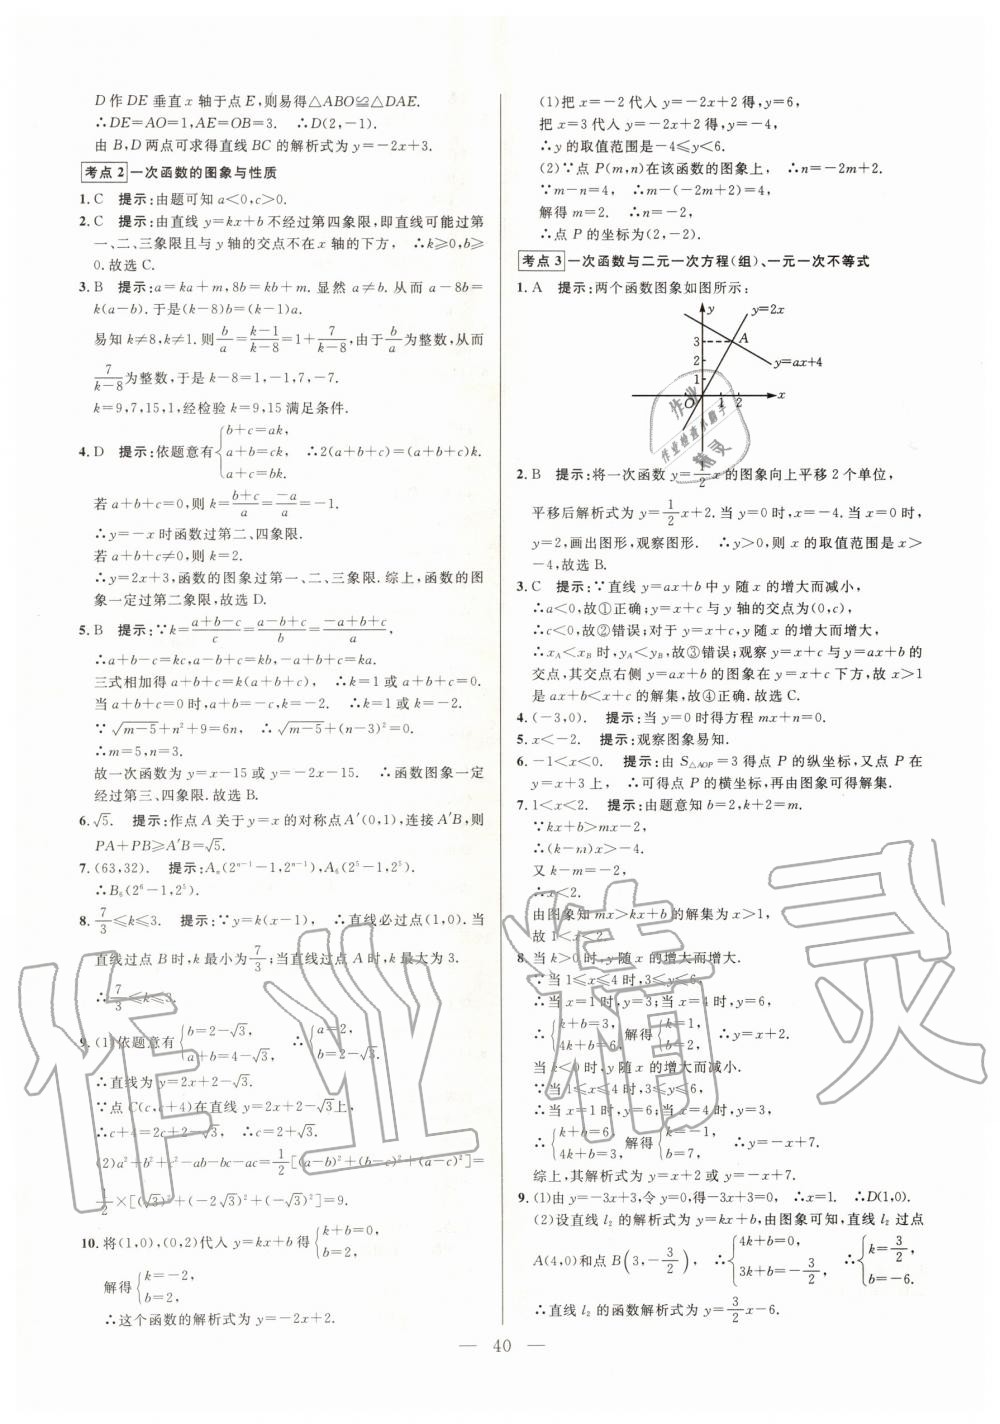 D作DE垂直x轴于点E,则易得△ABO≌△DAE.
∴DE=AO=1,AE=OB=3.　∴D(2,-1).
由B,D两点可求得直线BC的解析式为y=-2x+3.
考点2 一次函数的图象与性质
1. C　提示:由题可知a<0,c>0.
2. C　提示:由直线y=kx+b不经过第四象限,即直线可能过第
一、二、三象限且与y轴的交点不在x轴的下方,　∴k≥0,b≥
0.故选C.
3. B　提示:a=ka+m,8b=kb+m.显然a≠b.从而a-8b=
k(a-b).于是(k-8)b=(k-1)a.
易知k≠8,k≠1.则b/a=(k-1)/(k-8)=1+7/(k-8),由于b/a为整数,从而
7/(k-8)为整数,于是k-8=1,-1,7,-7.
k=9,7,15,1,经检验k=9,15满足条件.
4. D　提示:依题意有{b+c=ak, a+b=ck, a+c=bk.　∴2(a+b+c)=(a+b+c)k.
若a+b+c=0,则k=(b+c)/a=-a/a=-1.
∴y=-x时函数过第二、四象限.
若a+b+c≠0,则k=2.
∴y=2x+3,函数的图象过第一、二、三象限.综上,函数的图
象一定过第二象限,故选D.
5. B　提示:∵k=(a+b-c)/c=(a-b+c)/b=(-a+b+c)/a,
∴a+b-c=kc,a-b+c=kb,-a+b+c=ka.
三式相加得a+b+c=k(a+b+c),　∴k=1或a+b+c=0.
当a+b+c=0时,a+b=-c,k=-2.　∴k=1或k=-2.
∵√(m-5)+n²+9=6n,　∴√(m-5)+(n-3)²=0.
∴m=5,n=3.
故一次函数为y=x-15或y=-2x-15.　∴函数图象一定
经过第三、四象限.故选B.
6. √5.　提示:作点A关于y=x的对称点A′(0,1),连接A′B,则
PA+PB≥A′B=√5.
7. (63,32).　提示:Aₙ(2ⁿ⁻¹-1,2ⁿ⁻¹),A₆(2⁵-1,2⁵).
∴B₆(2⁶-1,2⁵).
8. 7/3≤k≤3.　提示:∵y=k(x-1),　∴直线必过点(1,0).当
直线过点B时,k最小为7/3;当直线过点A时,k最大为3.
∴7/3≤k≤3.
9. (1)依题意有{b=2-√3, a+b=4-√3,　∴{a=2, b=2-√3.
∴直线为y=2x+2-√3.
∵点C(c,c+4)在直线y=2x+2-√3上,
∴c+4=2c+2-√3,　∴c=2+√3.
(2)a²+b²+c²-ab-bc-ac=1/2[(a-b)²+(b-c)²+(a-c)²]=
1/2×[(√3)²+(-2√3)²+(-√3)²]=9.
10. 将(1,0),(0,2)代入y=kx+b得{k+b=0, b=2,
解得{k=-2, b=2.
∴这个函数的解析式为y=-2x+2.
(1)把x=-2代入y=-2x+2得,y=6,
把x=3代入y=-2x+2得,y=-4,
∴y的取值范围是-4≤y<6.
(2)∵点P(m,n)在该函数的图象上,　∴n=-2m+2.
∵m-n=4,　∴m-(-2m+2)=4,
解得m=2.　∴n=-2,
∴点P的坐标为(2,-2).
考点3 一次函数与二元一次方程(组)、一元一次不等式
1. A　提示:两个函数图象如图所示:
y y=2x
3 A
2 y=ax+4
1
O 1 2 x
2. B　提示:将一次函数y=1/2x的图象向上平移2个单位,
平移后解析式为y=1/2x+2.当y=0时,x=-4.当x=0时,
y=2,画出图形,观察图形.　∴y>0,则x的取值范围是x>
-4,故选B.
3. C　提示:∵直线y=ax+b中y随x的增大而减小,
∴a<0,故①正确;y=x+c与y轴的交点为(0,c),
∴c<0,故②错误;对于y=x+c,y随x的增大而增大,
∴x_A<x_B时,y_A<y_B,故③错误;观察y=x+c与y=ax+b的
交点,其交点右侧y=ax+b的图象在y=x+c下方,故x>1
是ax+b<x+c的解集,故④正确.故选C.
4. (-3,0).　提示:当y=0时得方程mx+n=0.
5. x<-2.　提示:观察图象易知.
6. -1<x<0.　提示:由S△AOP=3得点P的纵坐标,又点P在
y=x+3上,　∴可得点P的横坐标,再由图象可得解集.
7. 1<x<2.　提示:由题意知b=2,k+2=m.
∵kx+b>mx-2,
∴(k-m)x>-4.
又k-m=-2,
∴x<2.
由图象知mx>kx+b的解集为x>1,
故1<x<2.
8. 当k>0时,y随x的增大而增大.
∵当1≤x≤4时,3≤y≤6,
∴当x=1时,y=3;当x=4时,y=6,
∴{k+b=3, 4k+b=6.解得{k=1, b=2,　∴y=x+2.
当k<0时,y随x的增大而减小.
∵当1≤x≤4时,3≤y≤6,
∴当x=1时,y=6;当x=4时,y=3,
∴{k+b=6, 4k+b=3.解得{k=-1, b=7,　∴y=-x+7.
综上,其解析式为y=x+2或y=-x+7.
9. (1)由y=-3x+3,令y=0,得-3x+3=0,　∴x=1.　∴D(1,0).
(2)设直线l₂的解析式为y=kx+b,由图象可知,直线l₂过点
A(4,0)和点B(3,-3/2),　∴{4k+b=0, 3k+b=-3/2,　∴{k=3/2, b=-6.
∴直线l₂的函数解析式为y=3/2x-6.
— 40 —
作业精灵
作业
作业检查小助手
精灵